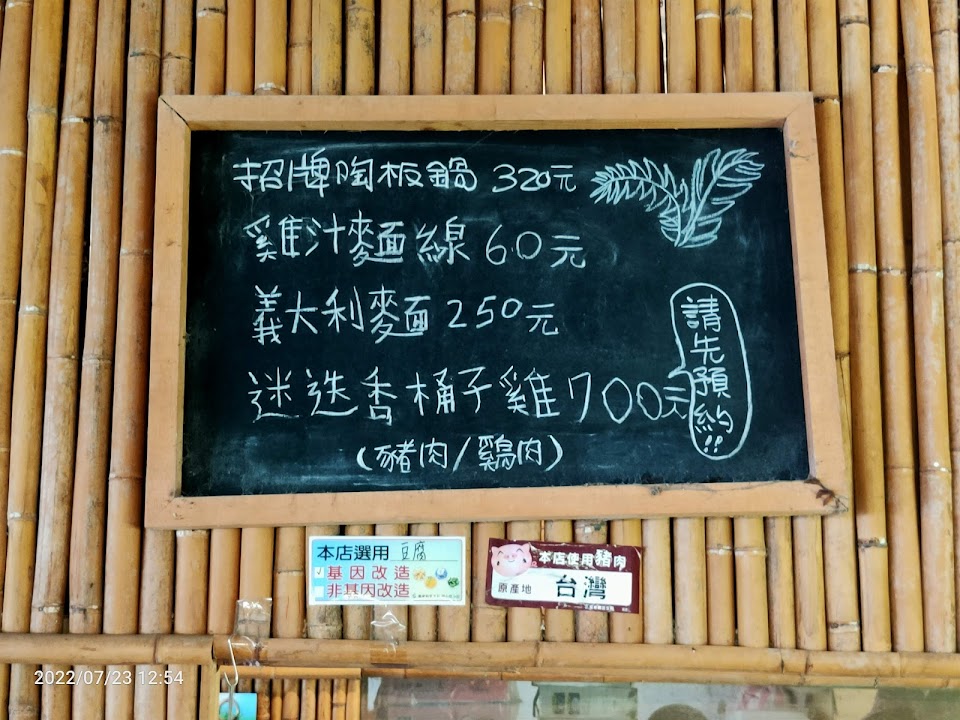 招牌陶板鍋 320元
雞汁麵線 60元
義大利麵 250元
迷迭香桶子雞 700元
(豬肉/鷄肉)
請先預約!!
本店選用 豆腐
基因改造
非基因改造
本店使用豬肉
原產地 台灣
2022/07/23 12:54